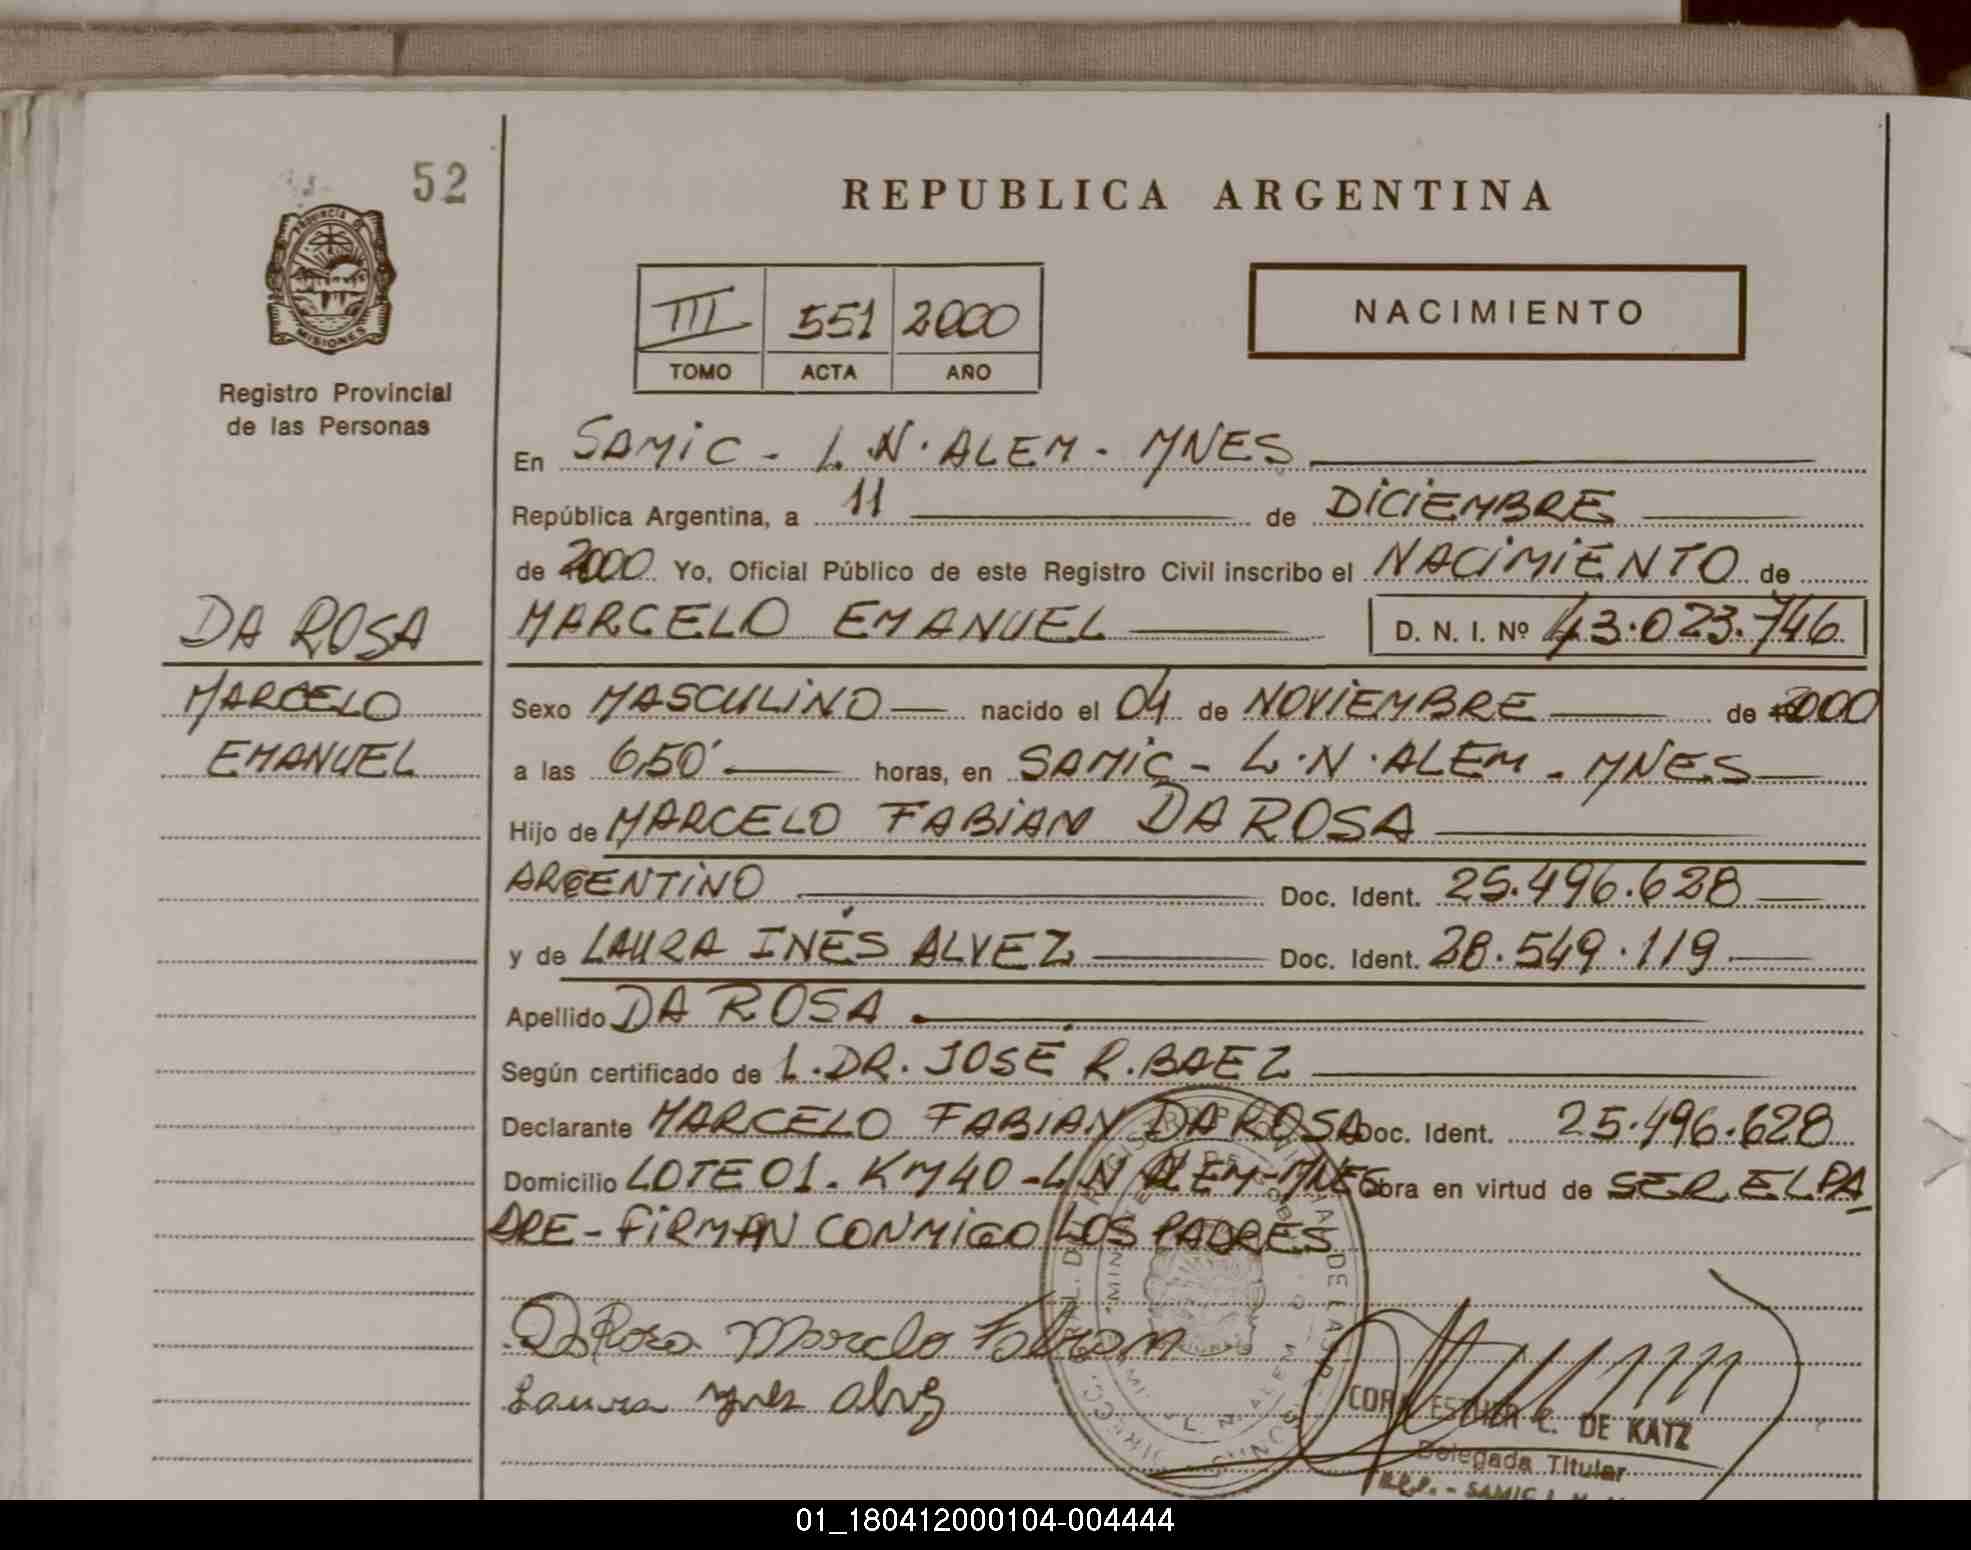 52
REPUBLICA ARGENTINA
PROVINCIA DE
MISIONES
III 551 2000
TOMO ACTA AÑO
NACIMIENTO
Registro Provincial
de las Personas
En SAMIC - L. N. ALEM - MNES
República Argentina, a 11 de DICIEMBRE
de 2000 Yo, Oficial Público de este Registro Civil inscribo el NACIMIENTO de
MARCELO EMANUEL D. N. I. Nº 43.023.746
DA ROSA
MARCELO
EMANUEL
Sexo MASCULINO nacido el 04 de NOVIEMBRE de 2000
a las 6,50' horas, en SAMIC - L. N. ALEM - MNES
Hijo de MARCELO FABIAN DA ROSA
ARGENTINO Doc. Ident. 25.496.628
y de LAURA INÉS ALVEZ Doc. Ident. 28.549.119
Apellido DA ROSA
Según certificado de L. DR. JOSÉ R. BAEZ
Declarante MARCELO FABIAN DA ROSA Doc. Ident. 25.496.628
Domicilio LOTE 01. KM 40 - L N ALEM - MNES Obra en virtud de SER EL PA
DRE - FIRMAN CONMIGO LOS PADRES
Da Rosa Marcelo Fabian
Laura Ynes Alvez
ESTHER C. DE KATZ
Delegada Titular
R.P.P. - SAMIC L. N.
01_180412000104-004444